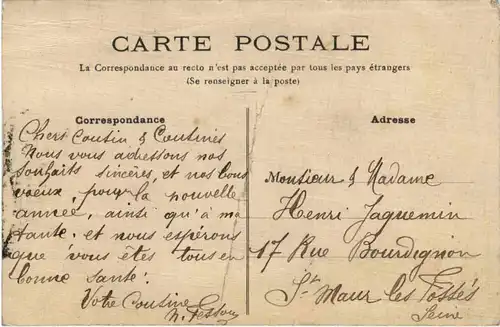 CARTE POSTALE
La Correspondance au recto n'est pas acceptée par tous les pays étrangers
(Se renseigner à la poste)
Correspondance
Chers Cousin & Cousines
Nous vous adressons nos
souhaits sincères, et nos bons
voeux, pour la nouvelle
année, ainsi qu'à ma
tante. et nous espérons
que vous êtes tous en
bonne santé.
Votre Cousine
Adresse
Monsieur & Madame
Henri Jaquemin
17 Rue Bourdignon
St Maur les Fossés
Seine